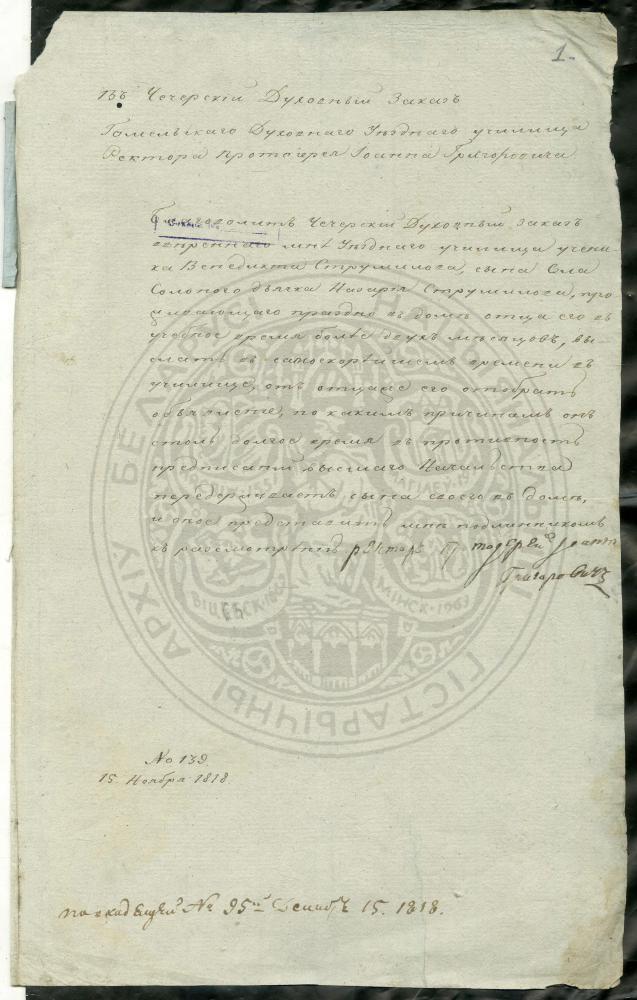 1.
Въ Чечерскій Духовный Заказъ
Гомельскаго Духовнаго Уѣзднаго училища
Ректора Протоіерея Іоанна Григоровича
Благоволитъ Чечерскій Духовный заказъ
ввѣреннаго мнѣ Уѣзднаго училища учени-
ка Венедикта Струмилова, сына Села
Солоного дьячка Назарія Струмилова, про-
живающаго праздно въ домѣ отца его въ
учебное время болѣе двухъ мѣсяцовъ, вы-
слать въ самоскорѣйшемъ времени въ
училище, отъ отца его отобрать
объясненіе, по какимъ причинамъ онъ
столь долгое время въ противность
предписаній высшаго Начальства
передерживаетъ сына своего въ домѣ,
и оное представить мнѣ подлинникомъ
къ разсмотренію ректоръ Протоіерей Іоаннъ
Григоровичъ
No 139.
15 Ноября 1818.
No 95 Декабр 15. 1818.
НАЦЫЯНАЛЬНЫ ГІСТАРЫЧНЫ АРХІЎ БЕЛАРУСІ
ВІЦЕБСК·1862
МІНСК·1963